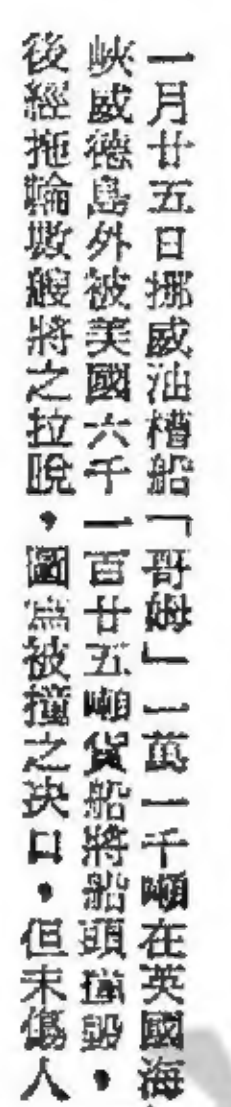 一月廿五日挪威油槽船「哥姆」一萬一千噸在英國海
峽威德島外被美國六千一百廿五噸貨船將船頭撞毀，
後經拖輪數艘將之拉脫，圖為被撞之決口，但未傷人